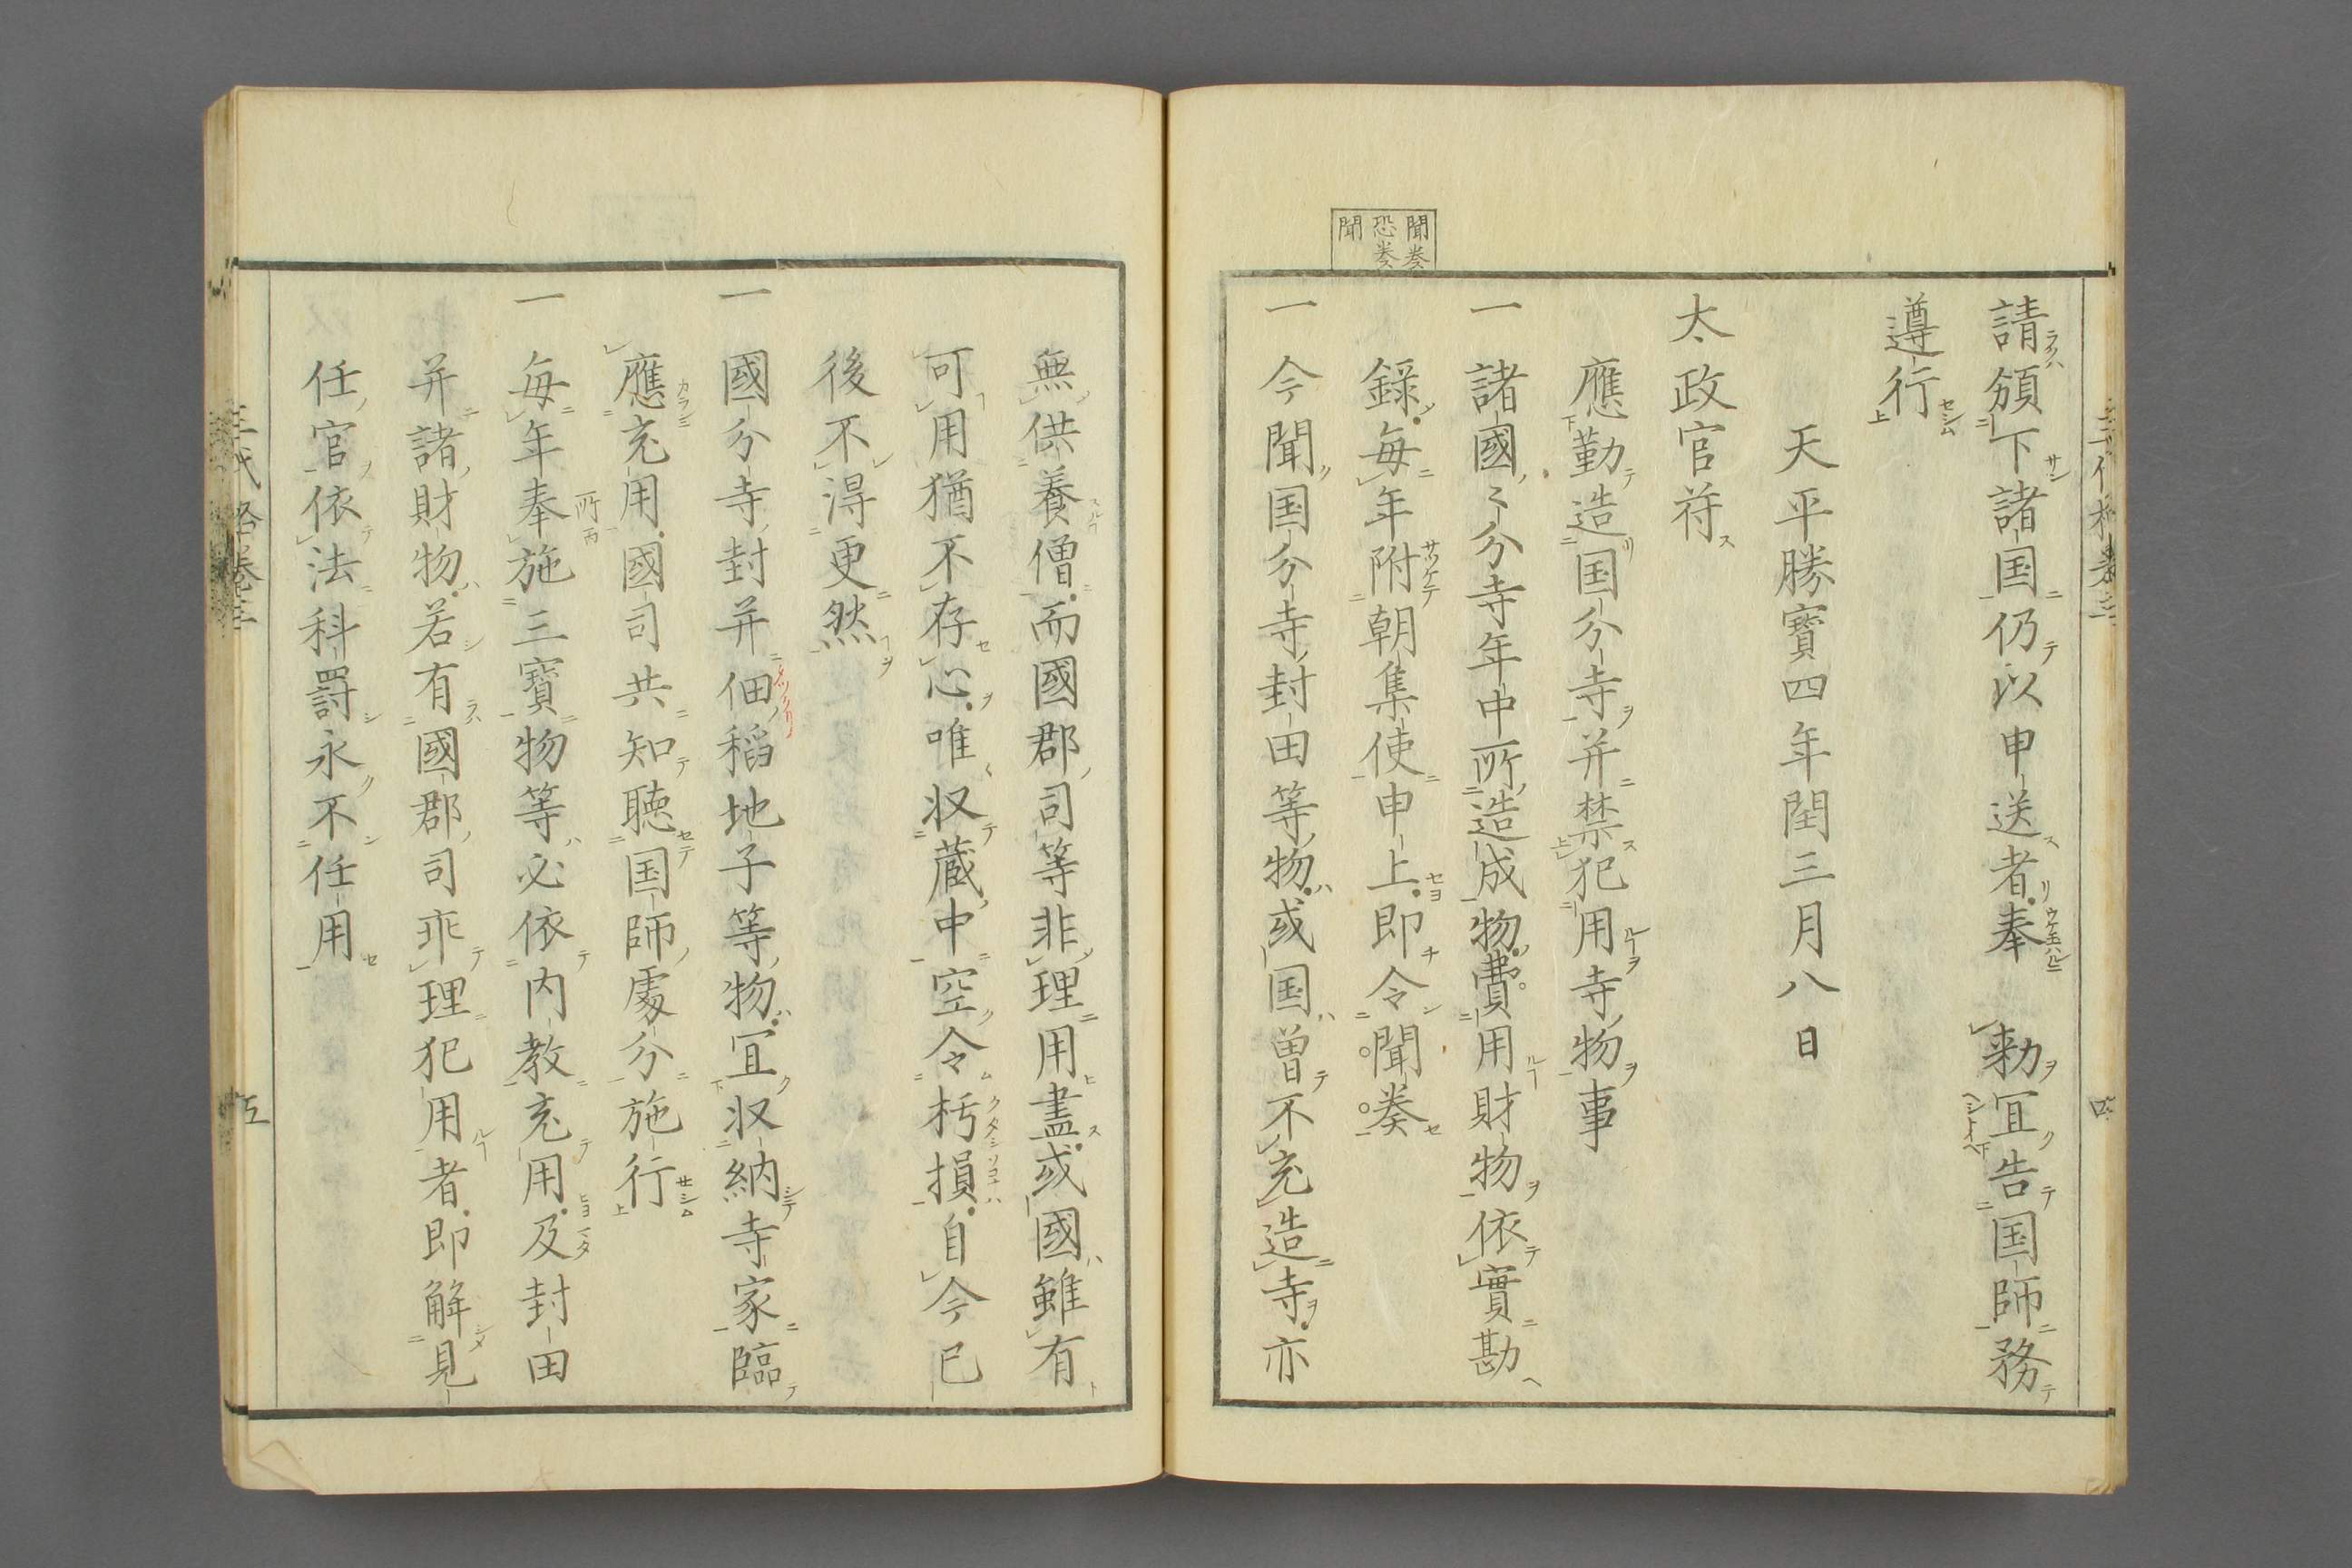 三代格卷三
四
聞奏
恐奏
聞
請頒下諸国仍以申送者奉　勅宜告国師務
遵行
天平勝寳四年閏三月八日
太政官符
應勤造国分寺并禁犯用寺物事
一　諸國〻分寺年中所造成物費用財物依實勘
録毎年附朝集使申上即令聞奏
一　今聞国分寺封田等物或国曽不充造寺亦
無供養僧而國郡司等非理用盡或國雖有
可用猶不存心唯収蔵中空令朽損自今已
後不淂更然
一　國分寺封并佃稻地子等物宜収納寺家臨
應充用國司共知聴国師處分施行
一　毎年奉施三寳物等必依内教充用及封田
并諸財物若有國郡司乖理犯用者即解見
任官依法科罸永不任用
三代格卷三
五